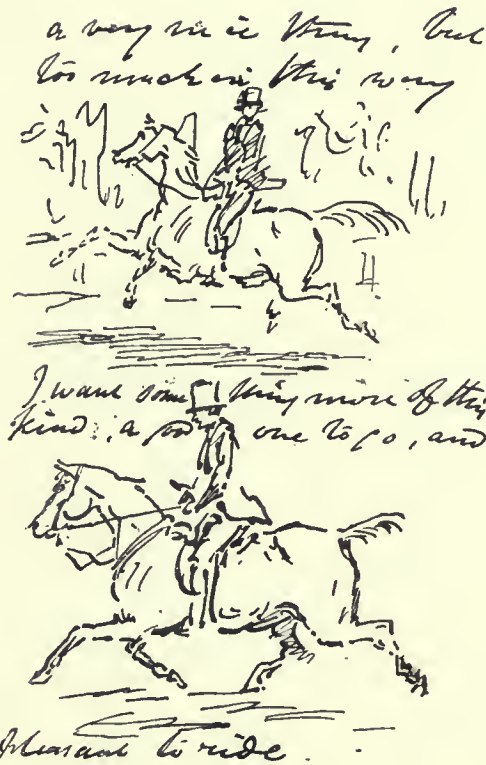 a very nice thing, but
too much in this way
I want some thing more of this
kind, a good one to go, and
pleasant to ride.